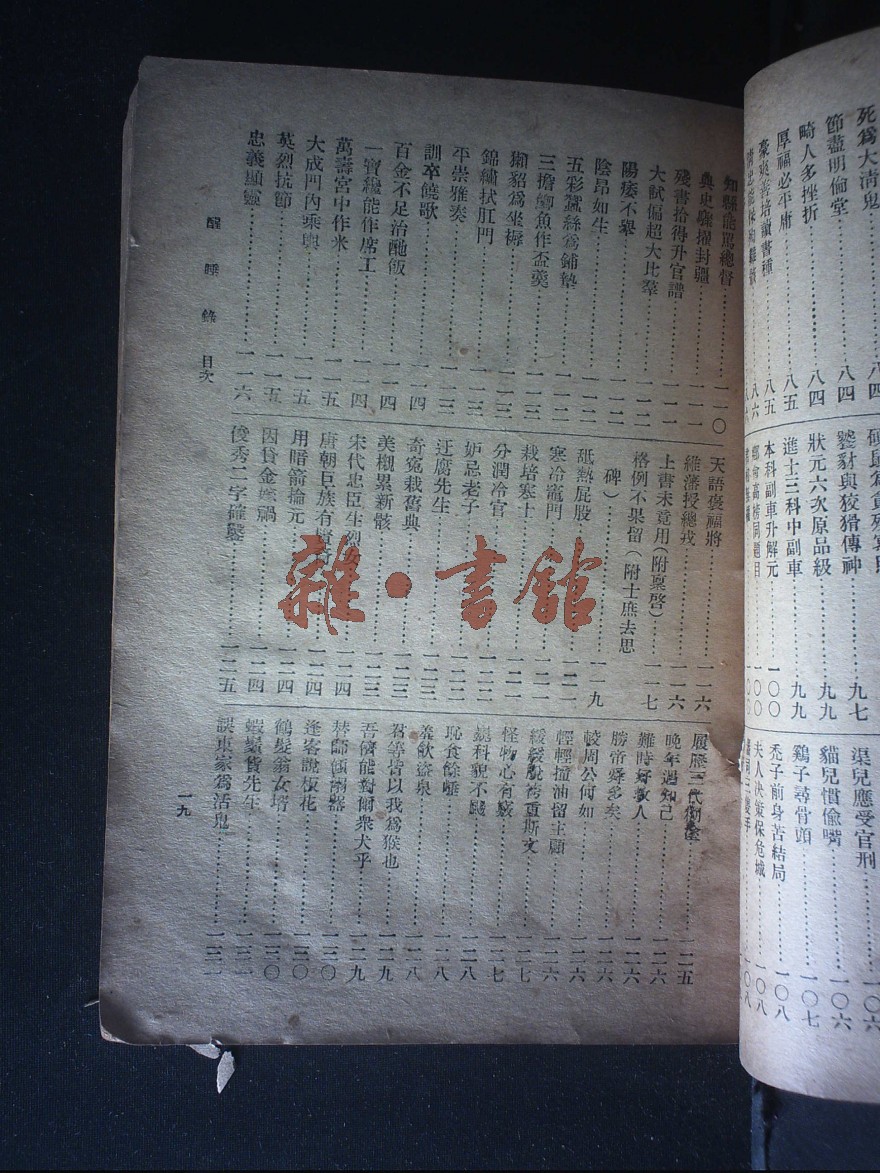 知縣能罵總督……一一〇
典史驟擢封疆……一一一
殘書拾得升官譜……一一一
大試偏超大比羣……一一二
陽痿不舉……一一二
陰昂如生……一一二
五彩蠶絲爲鋪墊……一一二
三擔鯽魚作盃羹……一一三
獺貂爲坐褥……一一三
錦繡拭肛門……一一三
平崇雅奏……一一三
訓卒饒歌……一一四
百金不足治酏飯……一一四
一寶纔能作席工……一一四
萬壽宮中作米……一一五
大成門內乘輿……一一五
英烈抗節……一一五
忠義顯靈……一一六
天語褒福將……一一六
維藩授總戎……一一六
上書未竟用(附稟啓)……一一七
格例不果留(附士庶去思
碑)……一一九
舐熱屁股
寒冷竈門
栽培寒士……一二二
分潤冷官……一二二
妒忌老子……一二二
迂腐先生……一二二
奇冤栽舊典……一二三
美櫬累新骸……一二三
宋代忠臣生烈女……一二四
唐朝巨族有
用暗箭掄元……一二四
因貸金嫁禍……一二四
俊秀二字確鑿……一二五
履歷三代
晚年遇知己……一二六
難時好救人……一二六
勝帝舜多矣……一二六
較周公何如……一二六
輕輕撞油留主顧……一二六
緩緩脫袴重斯文……一二七
怪物心有竅……一二七
科貌不颺……一二八
恥食餘唾……一二八
羞飲盜泉……一二八
君等皆以我爲猴也……一二九
吾儕能對爾衆犬乎……一二九
林師傾溺器……一三〇
逢客說板花……一三〇
鶴髮翁女壻……一三〇
蝦鬚貨先生……一三一
誤東家爲活鬼……一三一
醒睡錄 目次
一九
死爲大淸鬼……八四
節盡明倫堂……八四
畸人多挫折……八四
厚福必平庸……八五
豪爽善培讀書種……八五
八六
碩鼠爲貪殘寫
饕豺與狡猾傳神……九七
狀元六次原品級……九九
進士三科中副車……九九
本科副車升解元……一〇〇
鄉會高榜同題目……一〇〇
渠兒應受官刑……一〇六
貓兒慣偷嘴……一〇六
鷄子尋骨頭……一〇七
禿子前身苦結局……一〇八
夫人決策保危城……一〇八
雜·書館